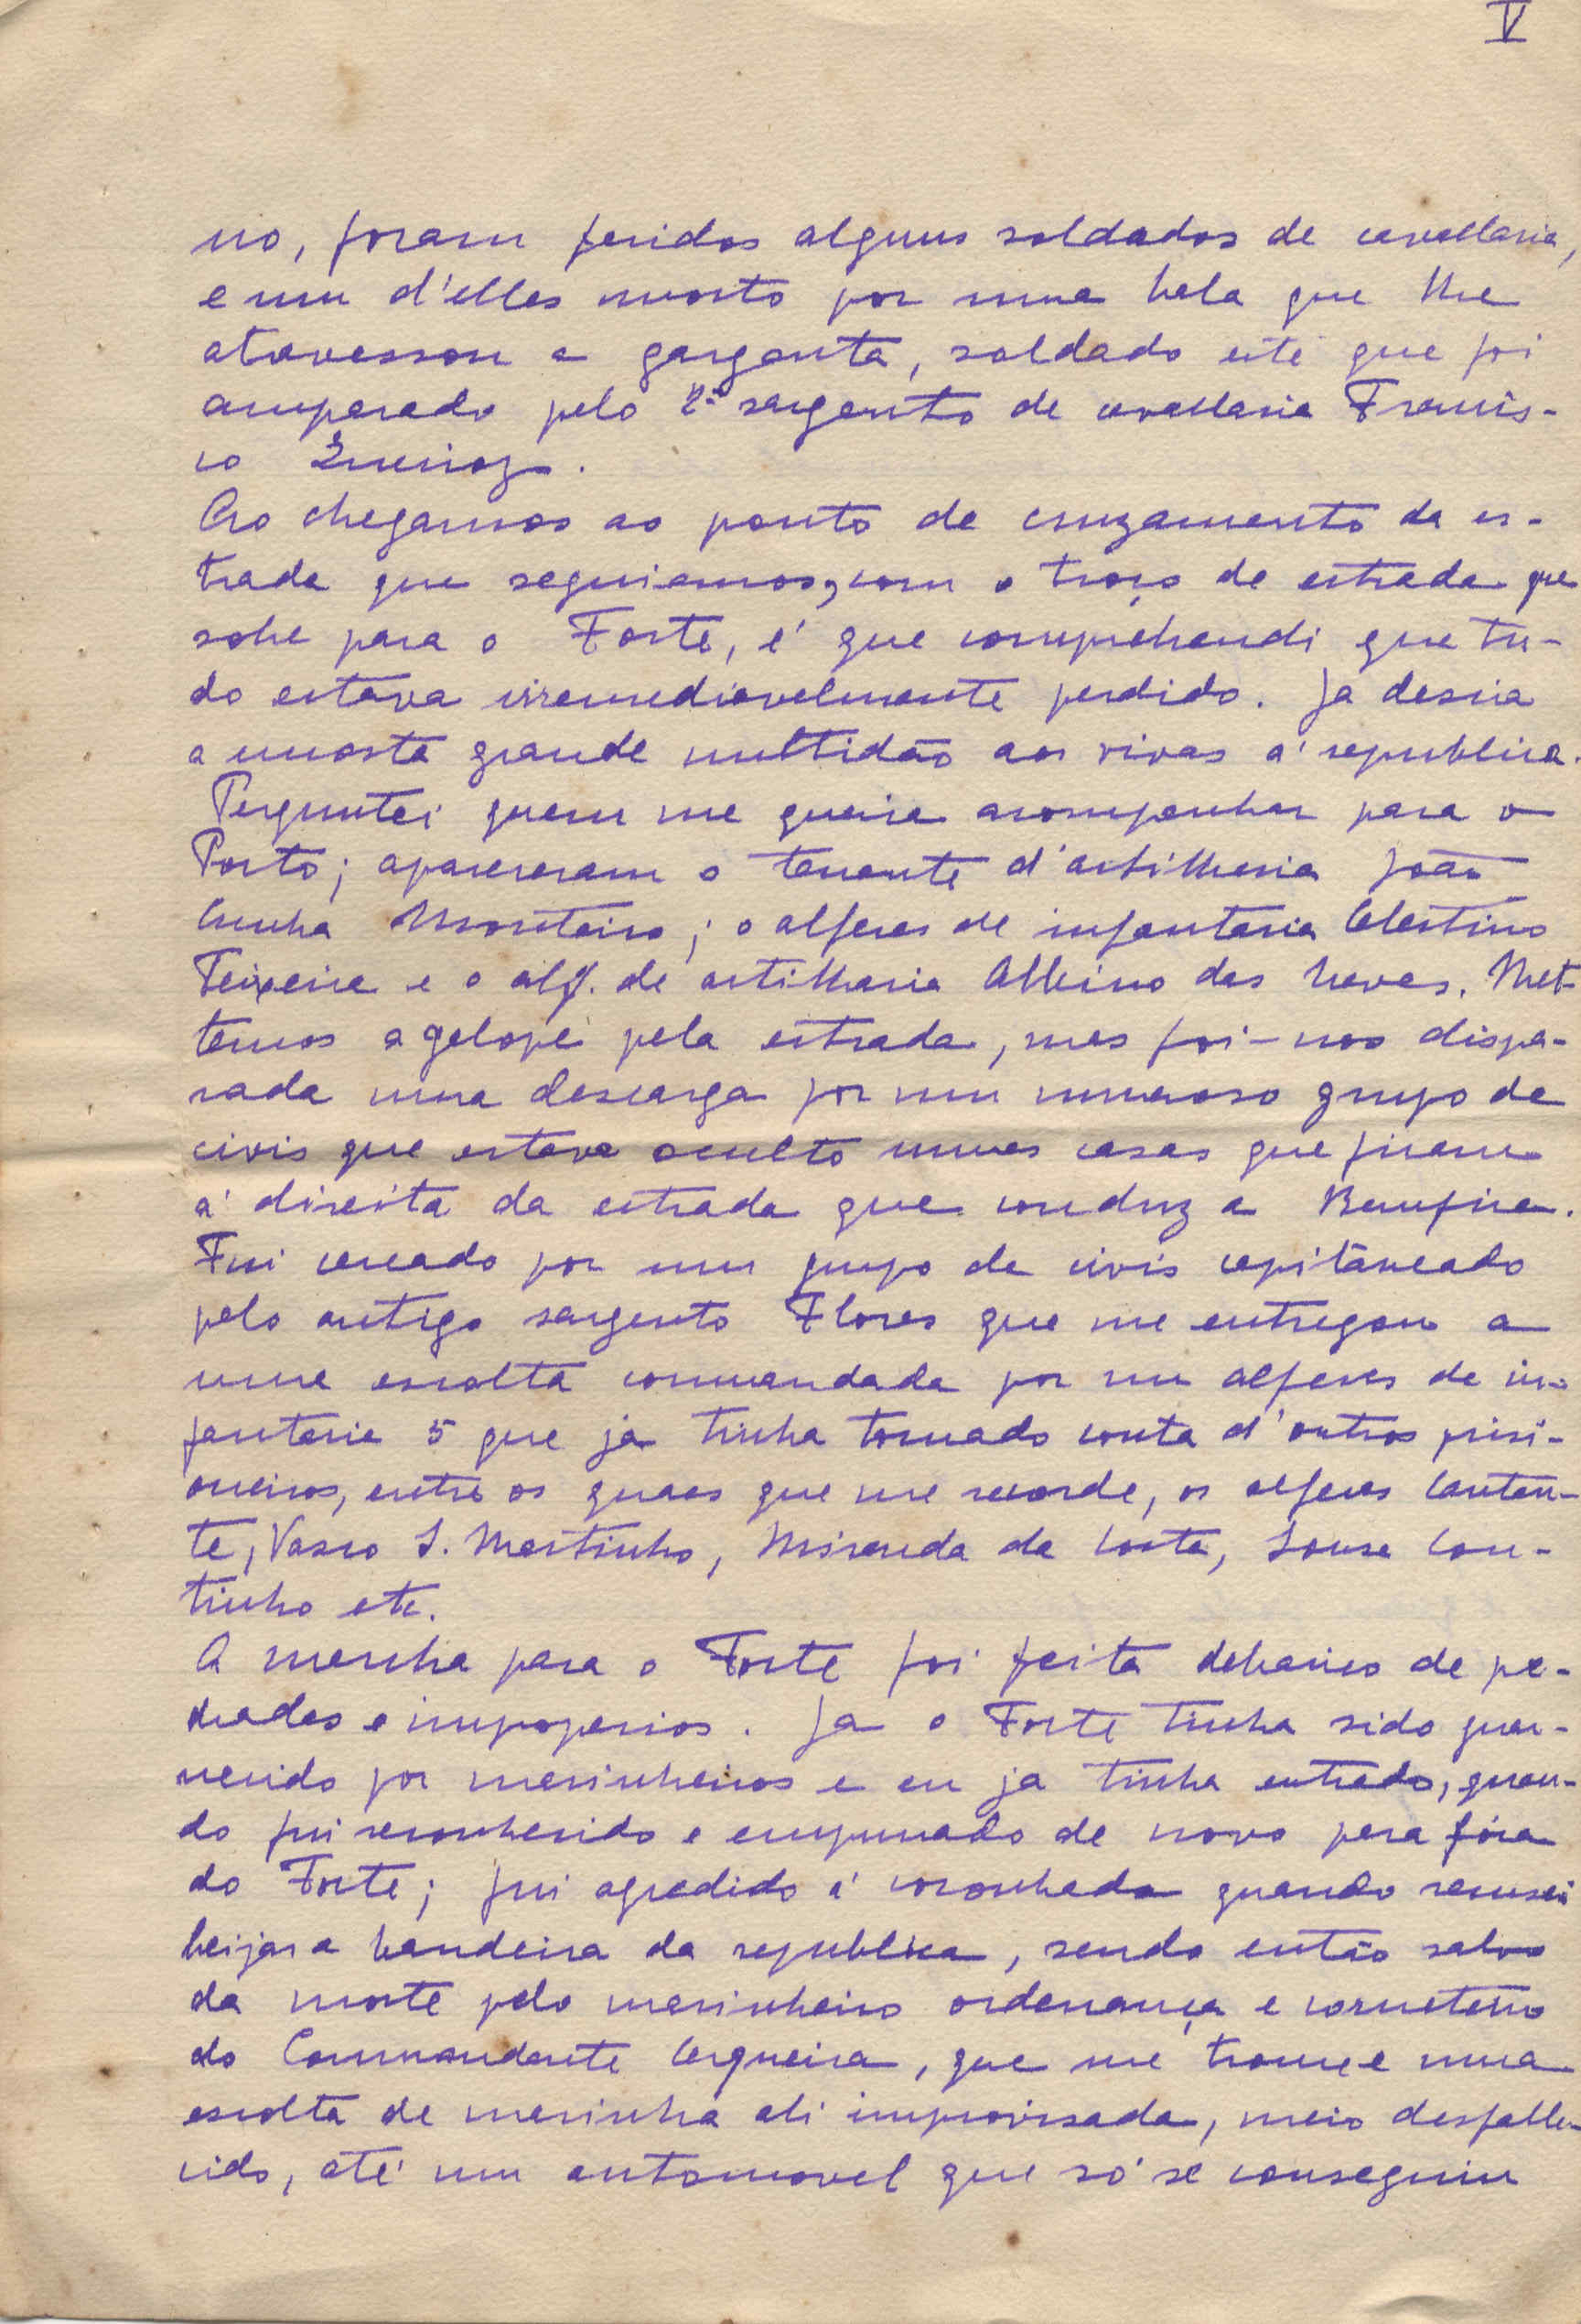 V
no, foram feridos alguns soldados de cavallaria,
e um d'elles morto por uma bala que lhe
atravessou a garganta, soldado este que foi
amparado pelo 2º sargento de cavallaria Francis-
co Queiroz.
Ao chegarmos ao ponto de cruzamento da es-
trada que seguiamos, com o troço de estrada que
sobe para o Forte, é que comprehendi que tu-
do estava irremediavelmente perdido. Ja descia
a encosta grande multidão aos vivas á republica.
Perguntei quem me queria acompanhar para o
Porto; apareceram o tenente d'artilheria João
Cunha Monteiro; o alferes de infantaria Celestino
Teixeira e o alf. de artilharia Albino das Neves. Met-
temos a galope pela estrada, mas foi-nos dispa-
rada uma descarga por um numeroso grupo de
civis que estava occulto numas casas que ficam
á direita da estrada que conduz a Bemfica.
Fui cercado por um grupo de civis capitaneado
pelo antigo sargento Flores que me entregou a
uma escolta commandada por um alferes de in-
fantaria 5 que ja tinha tomado conta d'outros prisi-
oneiros, entre os quaes que me recorde, os alferes Constan-
te, Vasco S. Martinho, Miranda da Costa, Sousa Cou-
tinho etc.
A marcha para o Forte foi feita debaixo de pe-
dradas e improperios. Ja o Forte tinha sido guar-
necido por marinheiros e eu ja tinha entrado, quan-
do fui reconhecido e empurrado de novo para fóra
do Forte; fui agredido á coronhada quando recusei
beijar a bandeira da republica, sendo então salvo
da morte pelo marinheiro ordenança e corneteiro
do Commandante Cerqueira, que me trouxe numa
escolta de marinha ali improvisada, meio desfalle-
cido, até um automovel que só se conseguiu